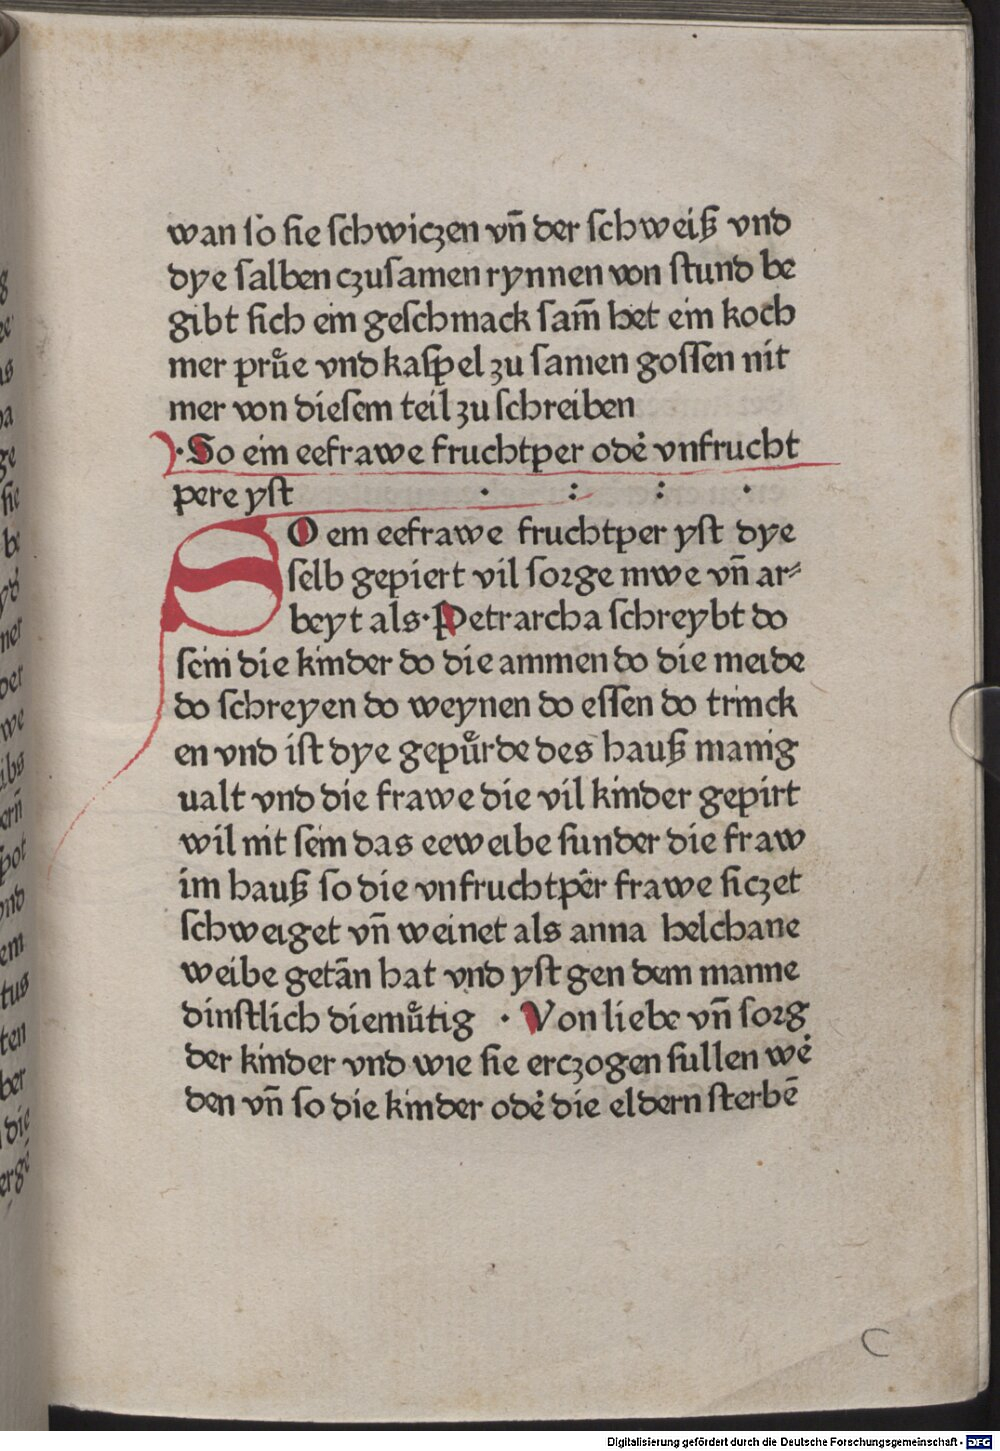 wan ſo ſie ſchwiczen vn̄ der ſchweiß vnd
dye ſalben czuſamen rynnen von ſtund be
gibt ſich ein geſchmack ſam̄ het ein koch
mer pruͤe vnd kaſpel zu ſamen goſſen nit
mer von dieſem teil zu ſchreiben
·So ein eefrawe fruchtper odeꝛ̇ vnfrucht
pere yſt · : : ·
SO ein eefrawe fruchtper yſt dye
ſelb gepiert vil ſoꝛge mwe vn̄ ar⸗
beyt als·Petrarcha ſchreybt do
ſein die kinder do die ammen do die meide
do ſchreyen do weynen do eſſen do trinck
en vnd iſt dye gepuͤrde des hauß manig
ualt vnd die frawe die vil kinder gepirt
wil nit ſein das eeweibe ſunder die fraw
im hauß ſo die vnfruchtper frawe ſiczet
ſchweiget vn̄ weinet als anna helchane
weibe getān hat vnd yſt gen dem manne
dinſtlich diemuͤtig · Von liebe vn̄ ſoꝛg
der kinder vnd wie ſie erczogen ſullen wė
den vn̄ ſo die kinder odė die eldern ſterbē
C
Digitalisierung gefördert durch die Deutsche Forschungsgemeinschaft - DFG